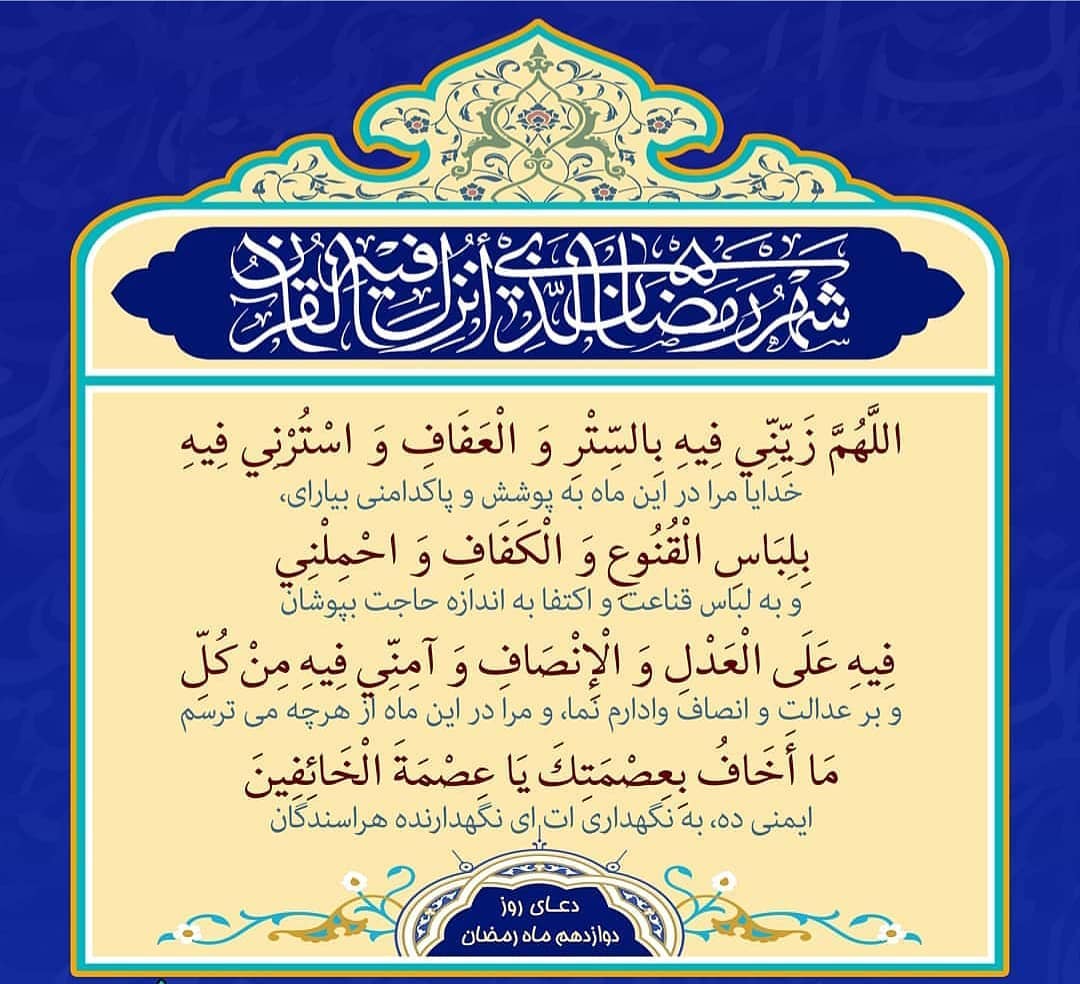 شهر رمضان الذي أنزل فيه القرآن
اللَّهُمَّ زَيِّنِّي فِيهِ بِالسِّتْرِ وَ الْعَفَافِ وَ اسْتُرْنِي فِيهِ
خدایا مرا در این ماه به پوشش و پاکدامنی بیارای،
بِلِبَاسِ الْقُنُوعِ وَ الْكَفَافِ وَ احْمِلْنِي
و به لباس قناعت و اکتفا به اندازه حاجت بپوشان
فِيهِ عَلَى الْعَدْلِ وَ الْإِنْصَافِ وَ آمِنِّي فِيهِ مِنْ كُلِّ
و بر عدالت و انصاف وادارم نما، و مرا در این ماه از هرچه می ترسم
مَا أَخَافُ بِعِصْمَتِكَ يَا عِصْمَةَ الْخَائِفِينَ
ایمنی ده، به نگهداری ات ای نگهدارنده هراسندگان
دعای روز
دوازدهم ماه رمضان